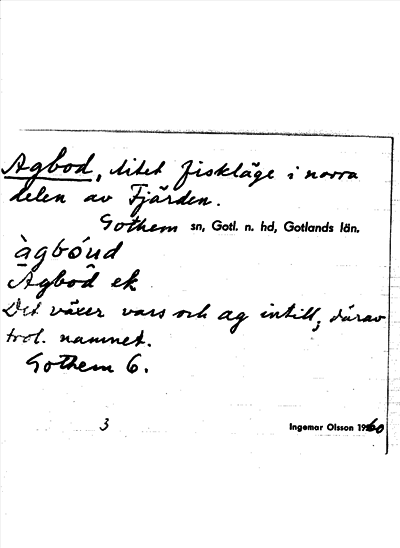 Agbod, litet fiskläge i norra
delen av Fjärden.
Gothem sn, Gotl. n. hd, Gotlands län.
àgbóud
Agbod ek
Det växer vass och ag intill, därav
trol. namnet.
Gothem 6.
3
Ingemar Olsson 1960